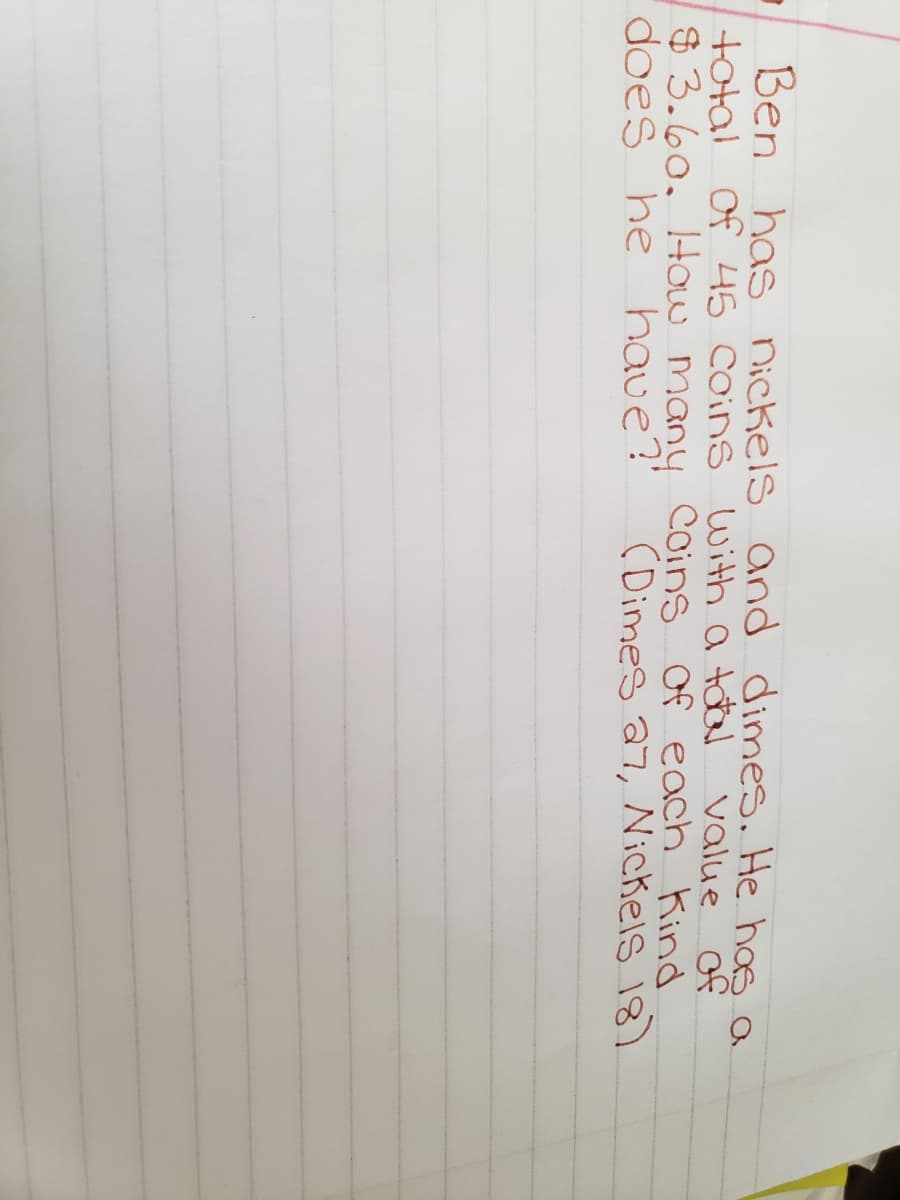 Ben has nickels and dimes. He has a
total of 45 coins with a total value of
$3.60. How many coins of each kind
does he have? (Dimes 27, Nickels 18)